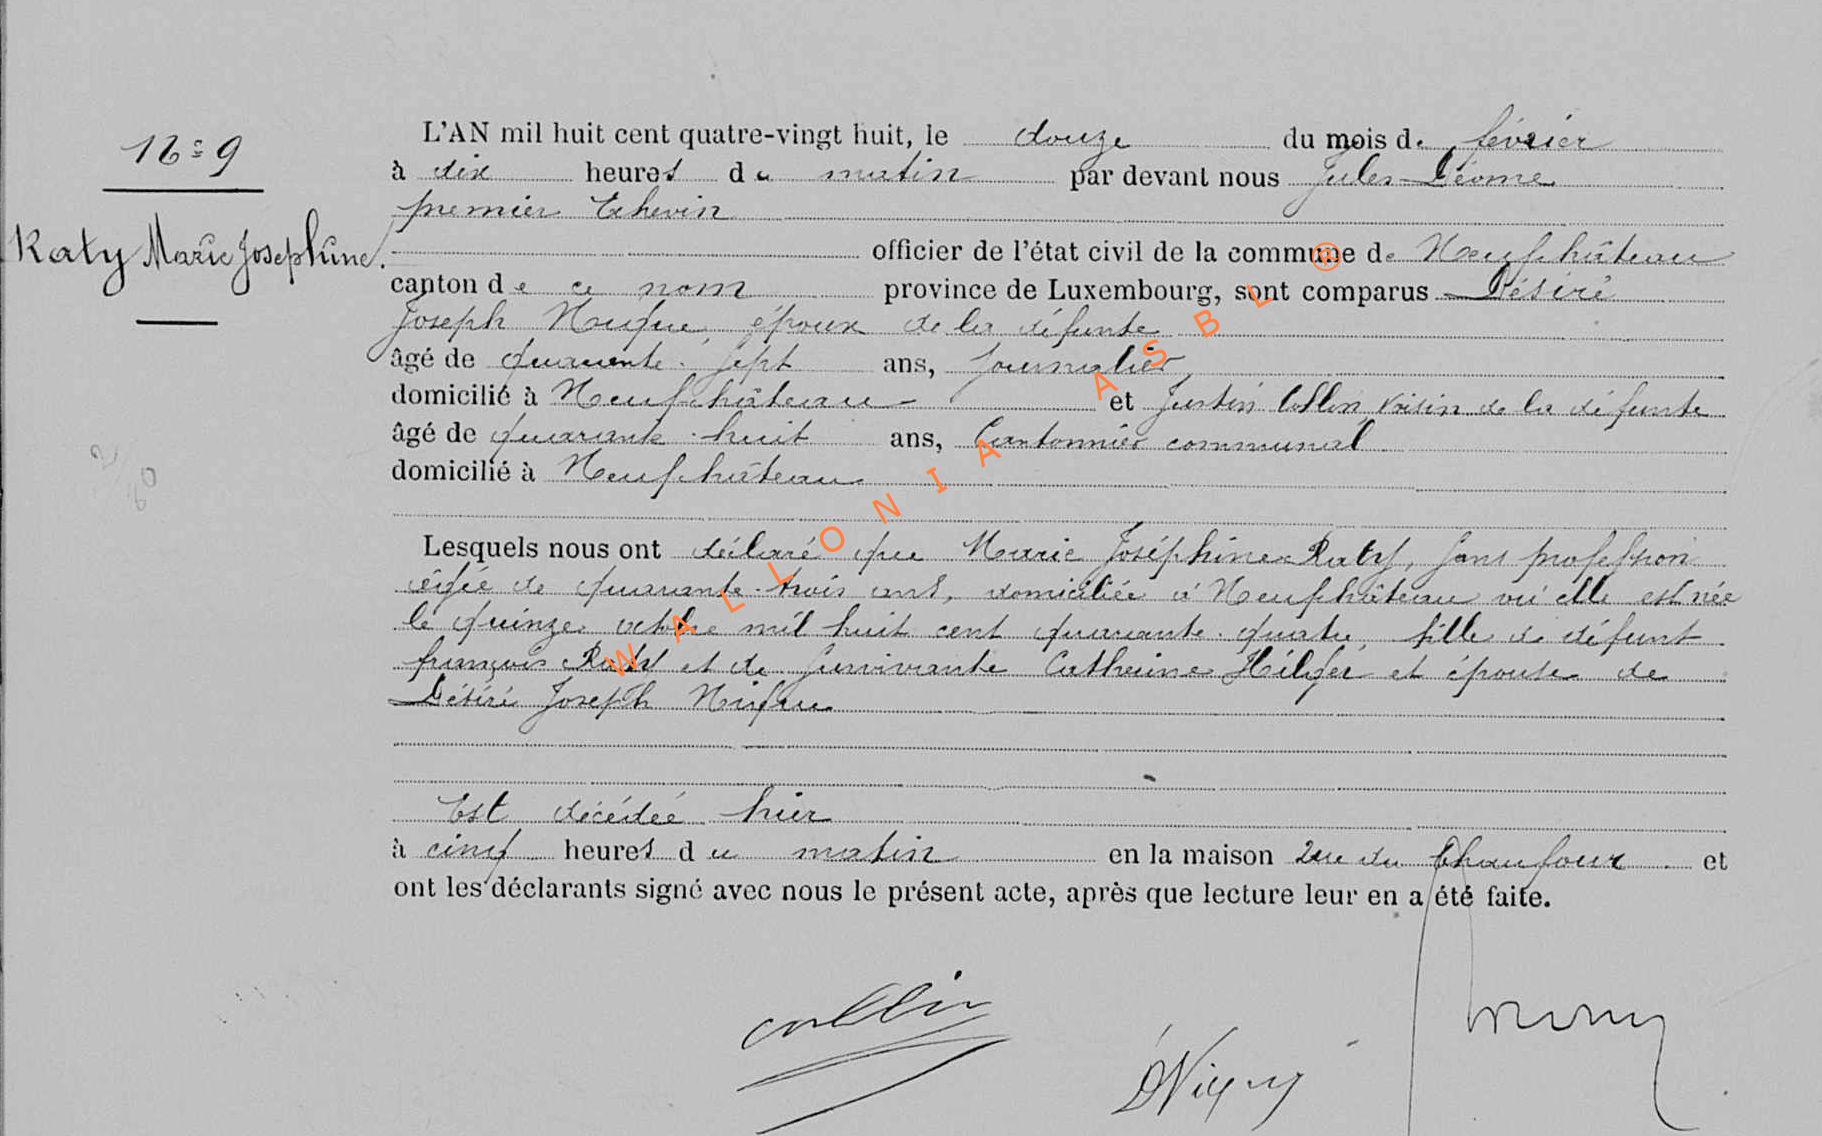 Nº 9
Raty Marie Joséphine.
L'AN mil huit cent quatre-vingt huit, le douze du mois de février
à dix heures du matin par devant nous Jules Déome
premier Echevin
officier de l'état civil de la commune de Neufchâteau
canton de ce nom province de Luxembourg, sont comparus Désiré
Joseph époux de la défunte
âgé de quarante-sept ans, journalier,
domicilié à Neufchâteau et Justin Collin, voisin de la défunte
âgé de quarante-huit ans, Cantonnier communal
domicilié à Neufchâteau
Lesquels nous ont déclaré que Marie Joséphine Raty, sans profession
âgée de quarante-trois ans, domiciliée à Neufchâteau où elle est née
le quinze octobre mil huit cent quarante-quatre, fille de défunt
françois Raty et de survivante Catherine Hilger et épouse de
Désiré Joseph
Est décédée hier
à cinq heures du matin en la maison rue du Chaufour et
ont les déclarants signé avec nous le présent acte, après que lecture leur en a été faite.
collin
WALLONIA ASBL ®